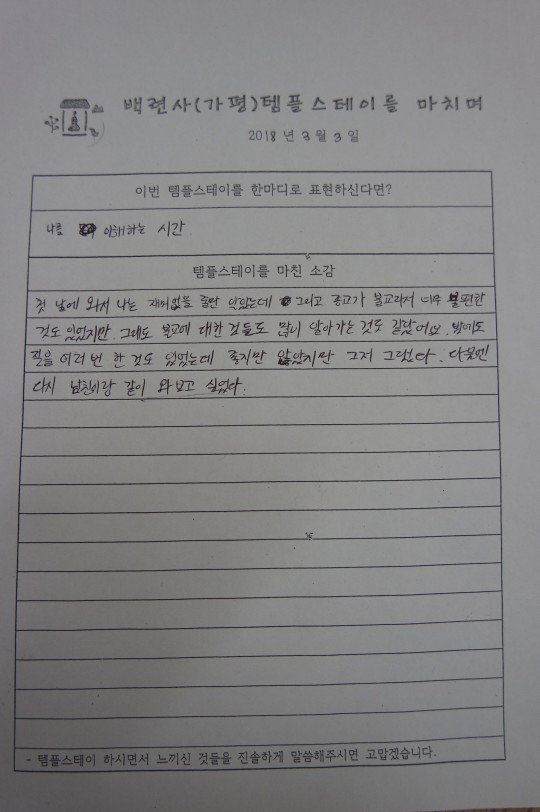 백련사(가평)템플스테이를 마치며
2018 년 3 월 3 일
이번 템플스테이를 한마디로 표현하신다면?
나를 이해하는 시간
템플스테이를 마친 소감
첫 날에 와서 나는 재미없을 줄만 알았는데 그리고 종교가 불교라서 너무 불편한
것도 있었지만. 그래도 불교에 대한 것들도 많이 알아가는 것도 많았어요. 밤에도
절을 여러 번 한 것도 있었는데 좋지만 않았지만 그저 그랬다. 다음엔
다시 남친이랑 같이 와보고 싶었다.
- 템플스테이 하시면서 느끼신 것들을 진솔하게 말씀해주시면 고맙겠습니다.